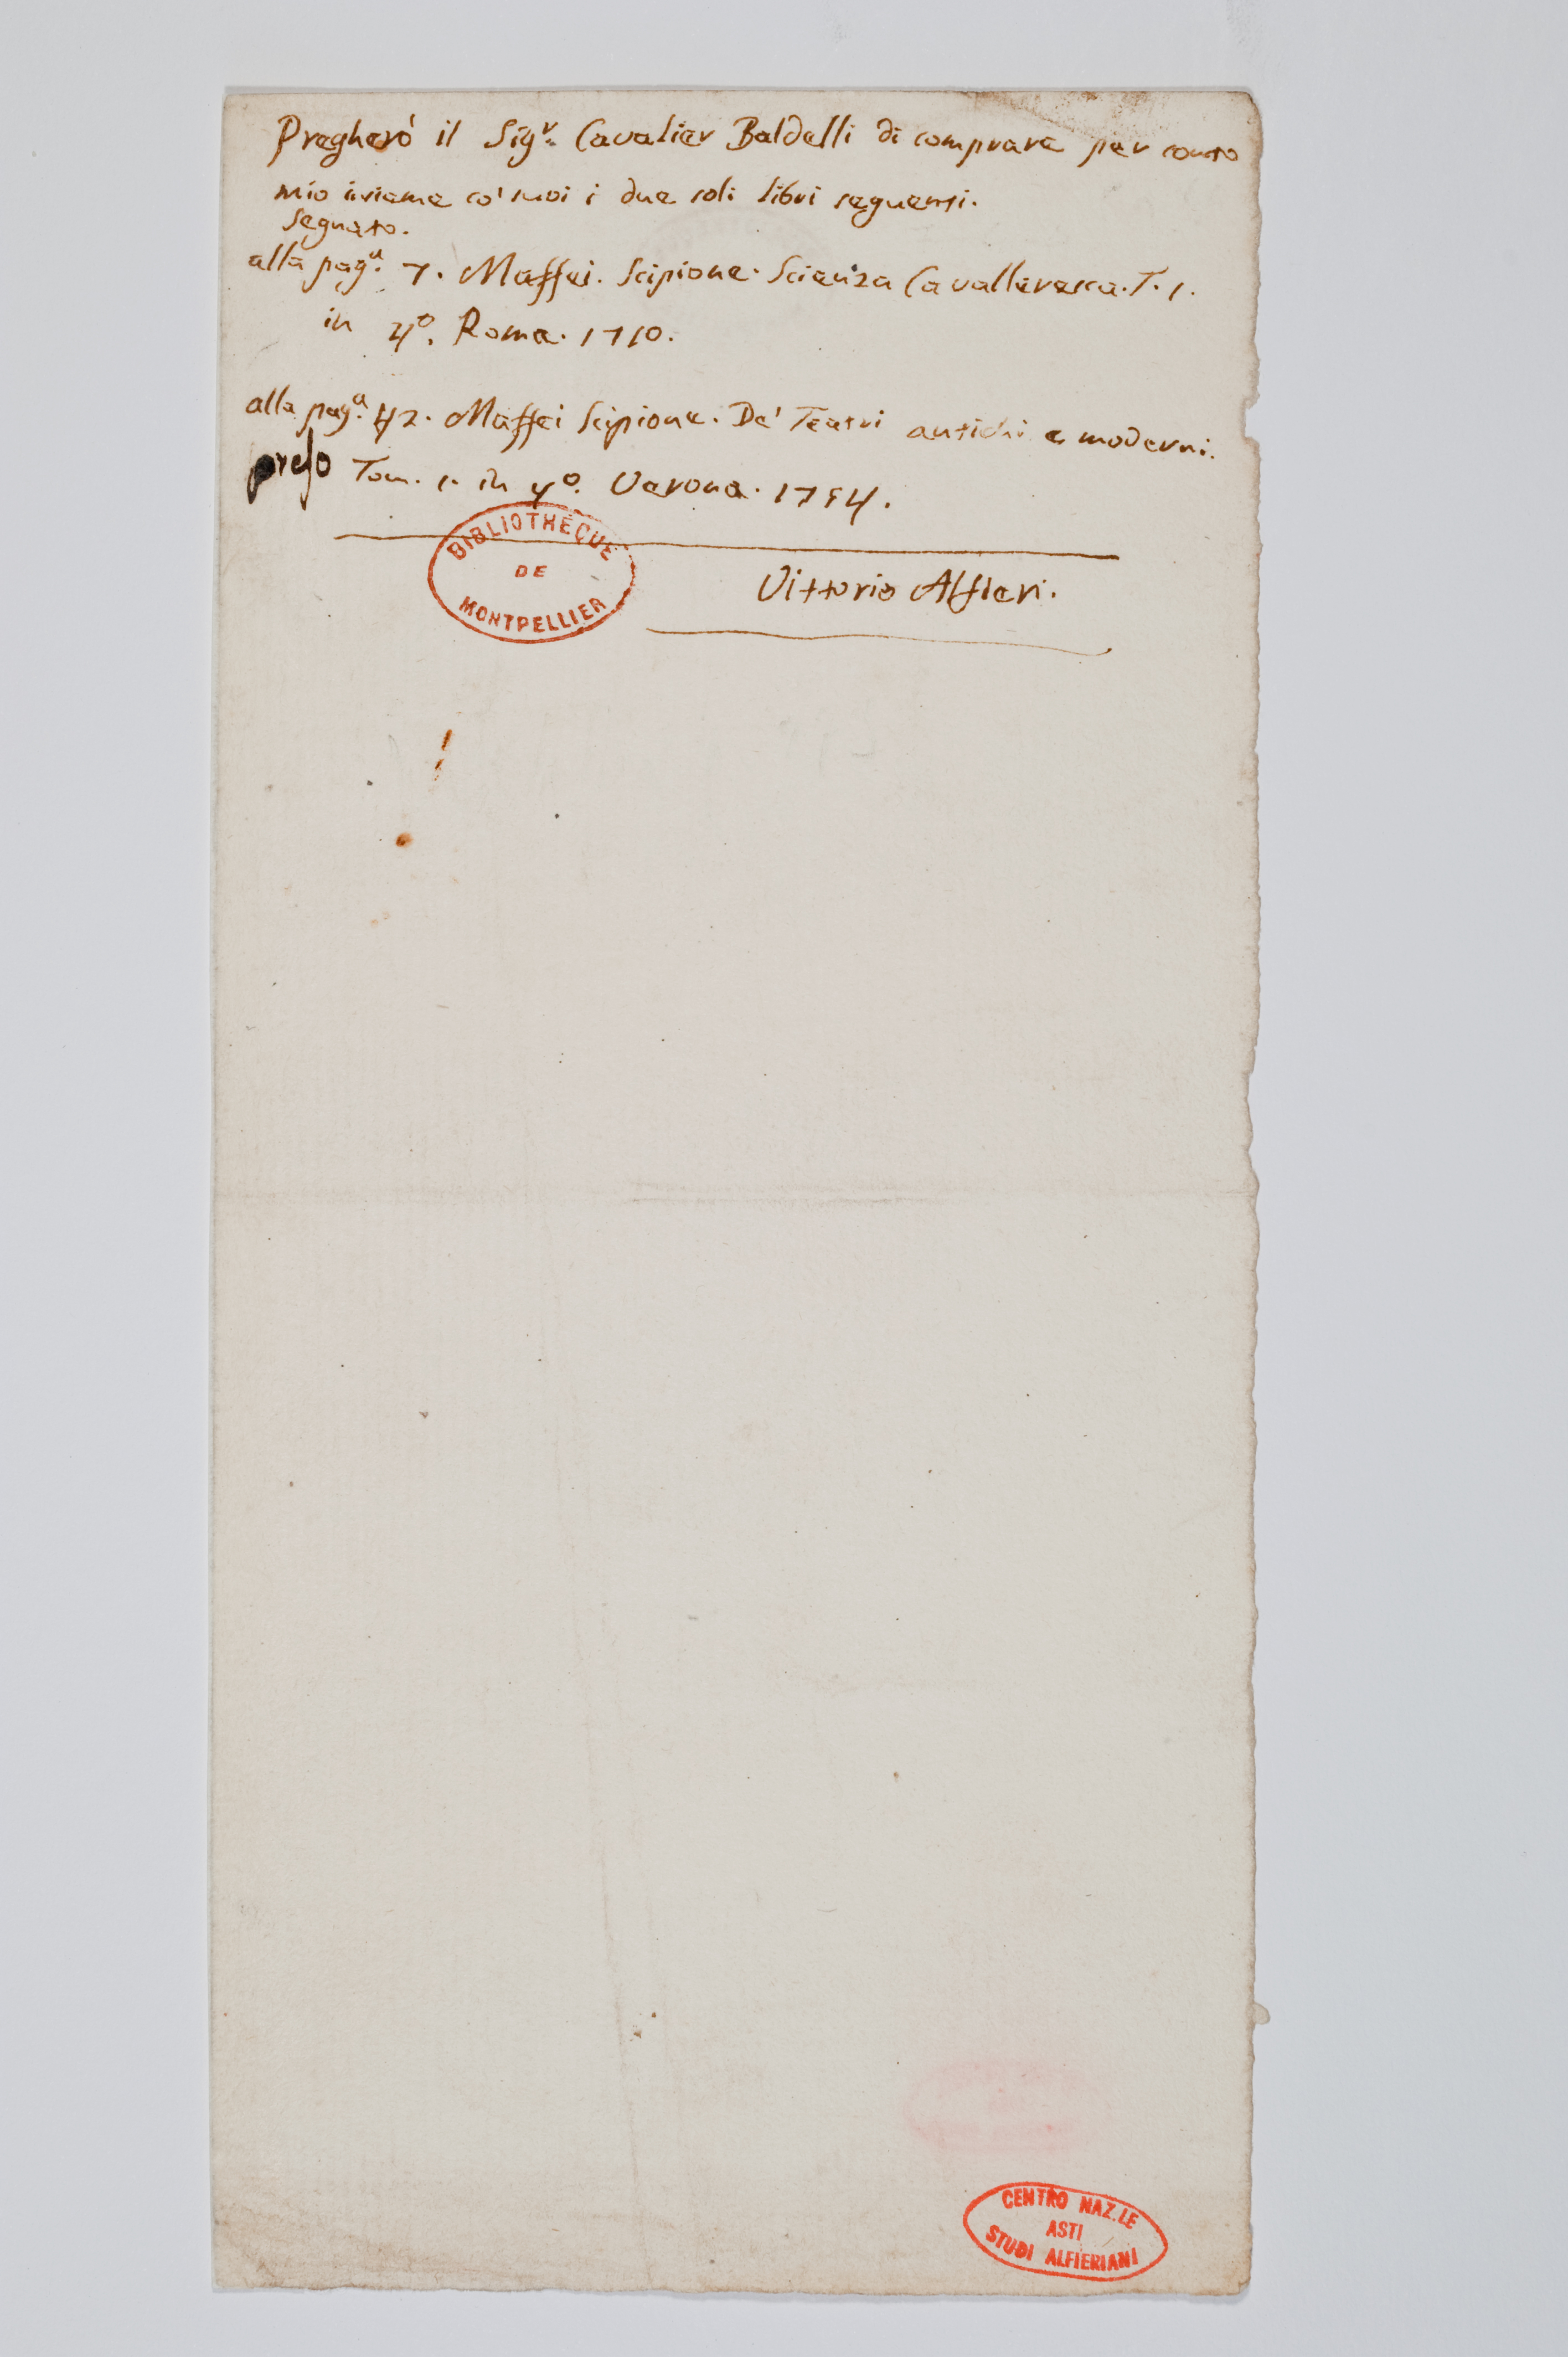 Pregherò il Sig.r Cavalier Baldelli di comprare per conto
mio insieme co' suoi i due soli libri seguenti.
Segnato.
alla pag.a 7. Maffei. Scipione. Scienza Cavalleresca. T. 1.
in 4.o Roma. 1710.
alla pag.a 42. Maffei Scipione. De' Teatri antichi e moderni.
preso Tom. 1. in 4.o Verona. 1754.
BIBLIOTHÈQUE
DE
MONTPELLIER
Vittorio Alfieri.
CENTRO NAZ.LE
ASTI
STUDI ALFIERIANI